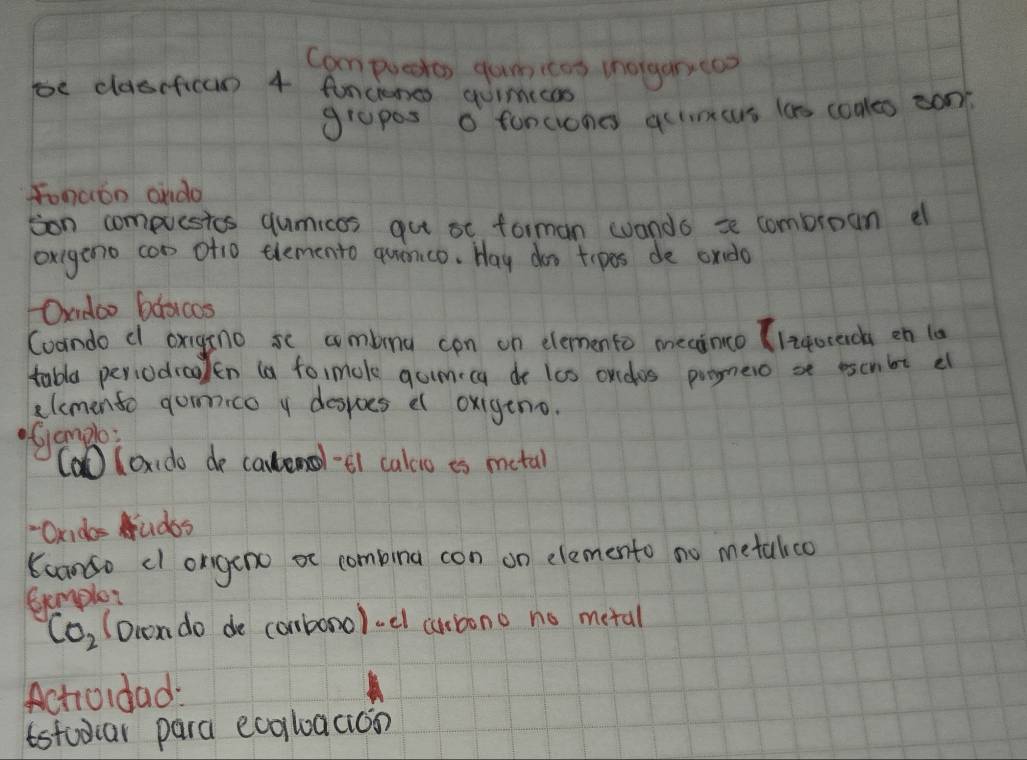 Compuestos quimicos inorganicos
se clasifican 4 funciones quimicas
grupos o funciones quimicas las cuales son:
Función oxido
son compuestos quimicos que se forman cuando se combinan el
oxigeno con otro elemento quimico. Hay dos tipos de oxido
-Oxidos básicos
Cuando el oxigeno se combina con un elemento mecánico (Izquierda en la
tabla periodica) En la formula quimica de los oxidos primero se escribe el
elemento quimico y despues el oxigeno.
•Ejemplo:
CaO (oxido de -El calcio es metal
-Oxidos Acidos
Cuando el oxigeno se combina con un elemento no metalico
Ejemplo:
CO₂ (Dioxido de carbono)-el carbono no metal
Actividad:
Estudiar para evaluación